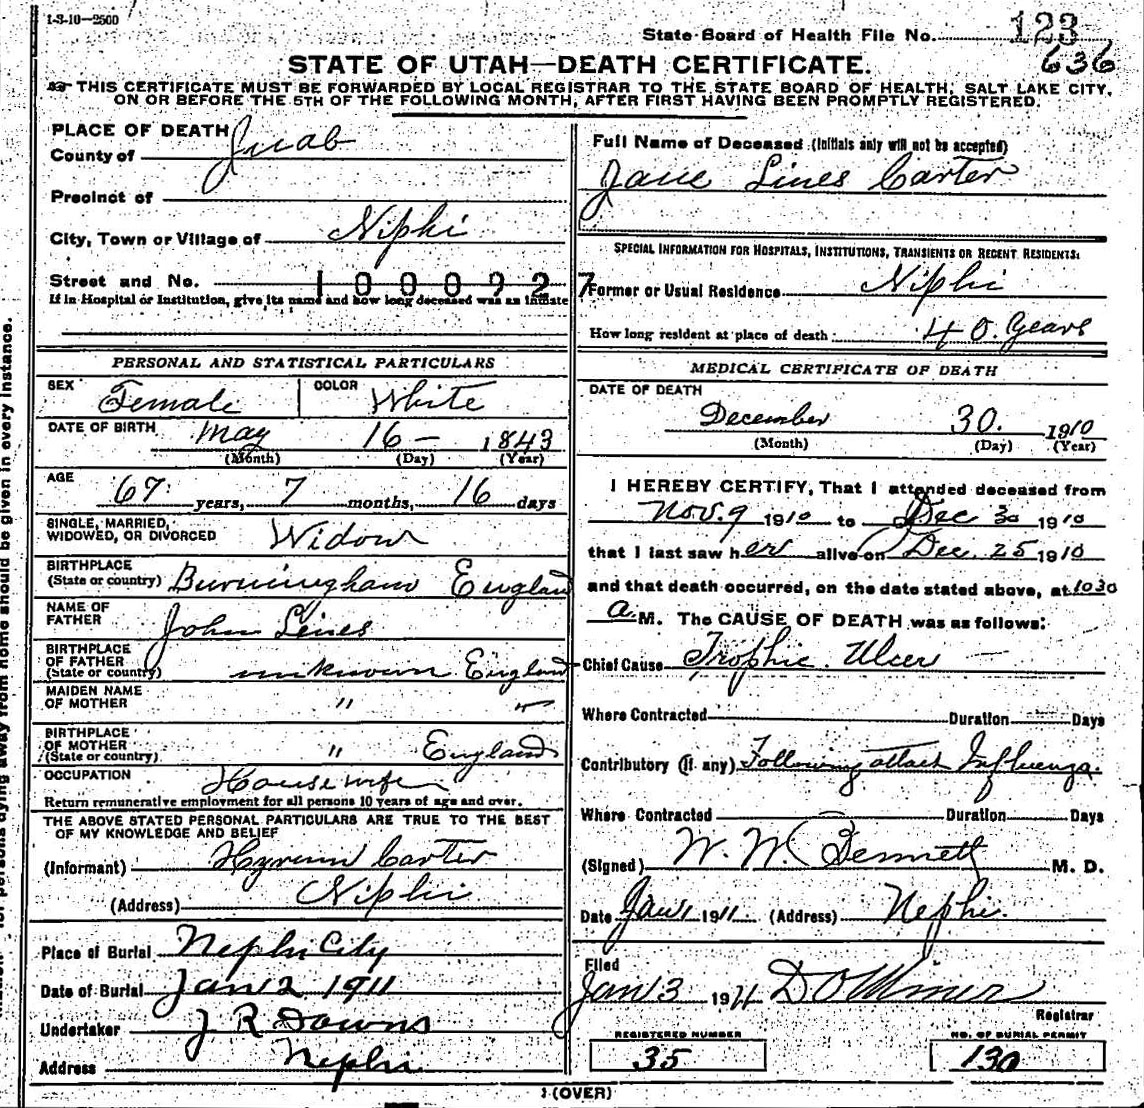 1-3-10—2500
State Board of Health File No. 123
636
STATE OF UTAH—DEATH CERTIFICATE.
THIS CERTIFICATE MUST BE FORWARDED BY LOCAL REGISTRAR TO THE STATE BOARD OF HEALTH, SALT LAKE CITY,
ON OR BEFORE THE 5TH OF THE FOLLOWING MONTH, AFTER FIRST HAVING BEEN PROMPTLY REGISTERED.
PLACE OF DEATH
County of Juab
Precinct of
City, Town or Village of Niphi
Street and No. 1000927
If in Hospital or Institution, give its name and how long deceased was an inmate
Full Name of Deceased (Initials only will not be accepted)
Jane Lines Carter
SPECIAL INFORMATION FOR HOSPITALS, INSTITUTIONS, TRANSIENTS OR RECENT RESIDENTS:
Former or Usual Residence Niphi
How long resident at place of death: 40. Years
PERSONAL AND STATISTICAL PARTICULARS
SEX Female COLOR White
DATE OF BIRTH May 16 — 1843
(Month) (Day) (Year)
AGE
67 years, 7 months, 16 days
SINGLE, MARRIED,
WIDOWED, OR DIVORCED Widow
BIRTHPLACE
(State or country) Burningham England
NAME OF
FATHER John Lines
BIRTHPLACE
OF FATHER
(State or country) unknown England
MAIDEN NAME
OF MOTHER " "
BIRTHPLACE
OF MOTHER
(State or country) " England
OCCUPATION Housewife
Return remunerative employment for all persons 10 years of age and over.
THE ABOVE STATED PERSONAL PARTICULARS ARE TRUE TO THE BEST
OF MY KNOWLEDGE AND BELIEF
(Informant) Hyrum Carter
(Address) Niphi
Place of Burial Nephi City
Date of Burial Jan 2 1911
Undertaker J R Downs
Address Nephi
MEDICAL CERTIFICATE OF DEATH
DATE OF DEATH
December 30. 1910
(Month) (Day) (Year)
I HEREBY CERTIFY, That I attended deceased from
Nov. 9 1910 to Dec 30 1910
that I last saw her alive on Dec. 25 1910
and that death occurred, on the date stated above, at 1030
a M. The CAUSE OF DEATH was as follows:
Chief Cause Trophic Ulcer —
Where Contracted Duration Days
Contributory (if any) Following attack Influenza.
Where Contracted Duration Days
(Signed) W. W. Bennett M. D.
Date Jan 1 1911 (Address) Nephi.
Filed
Jan 3 1911
Registrar
REGISTERED NUMBER
35
NO. OF BURIAL PERMIT
130
(OVER)